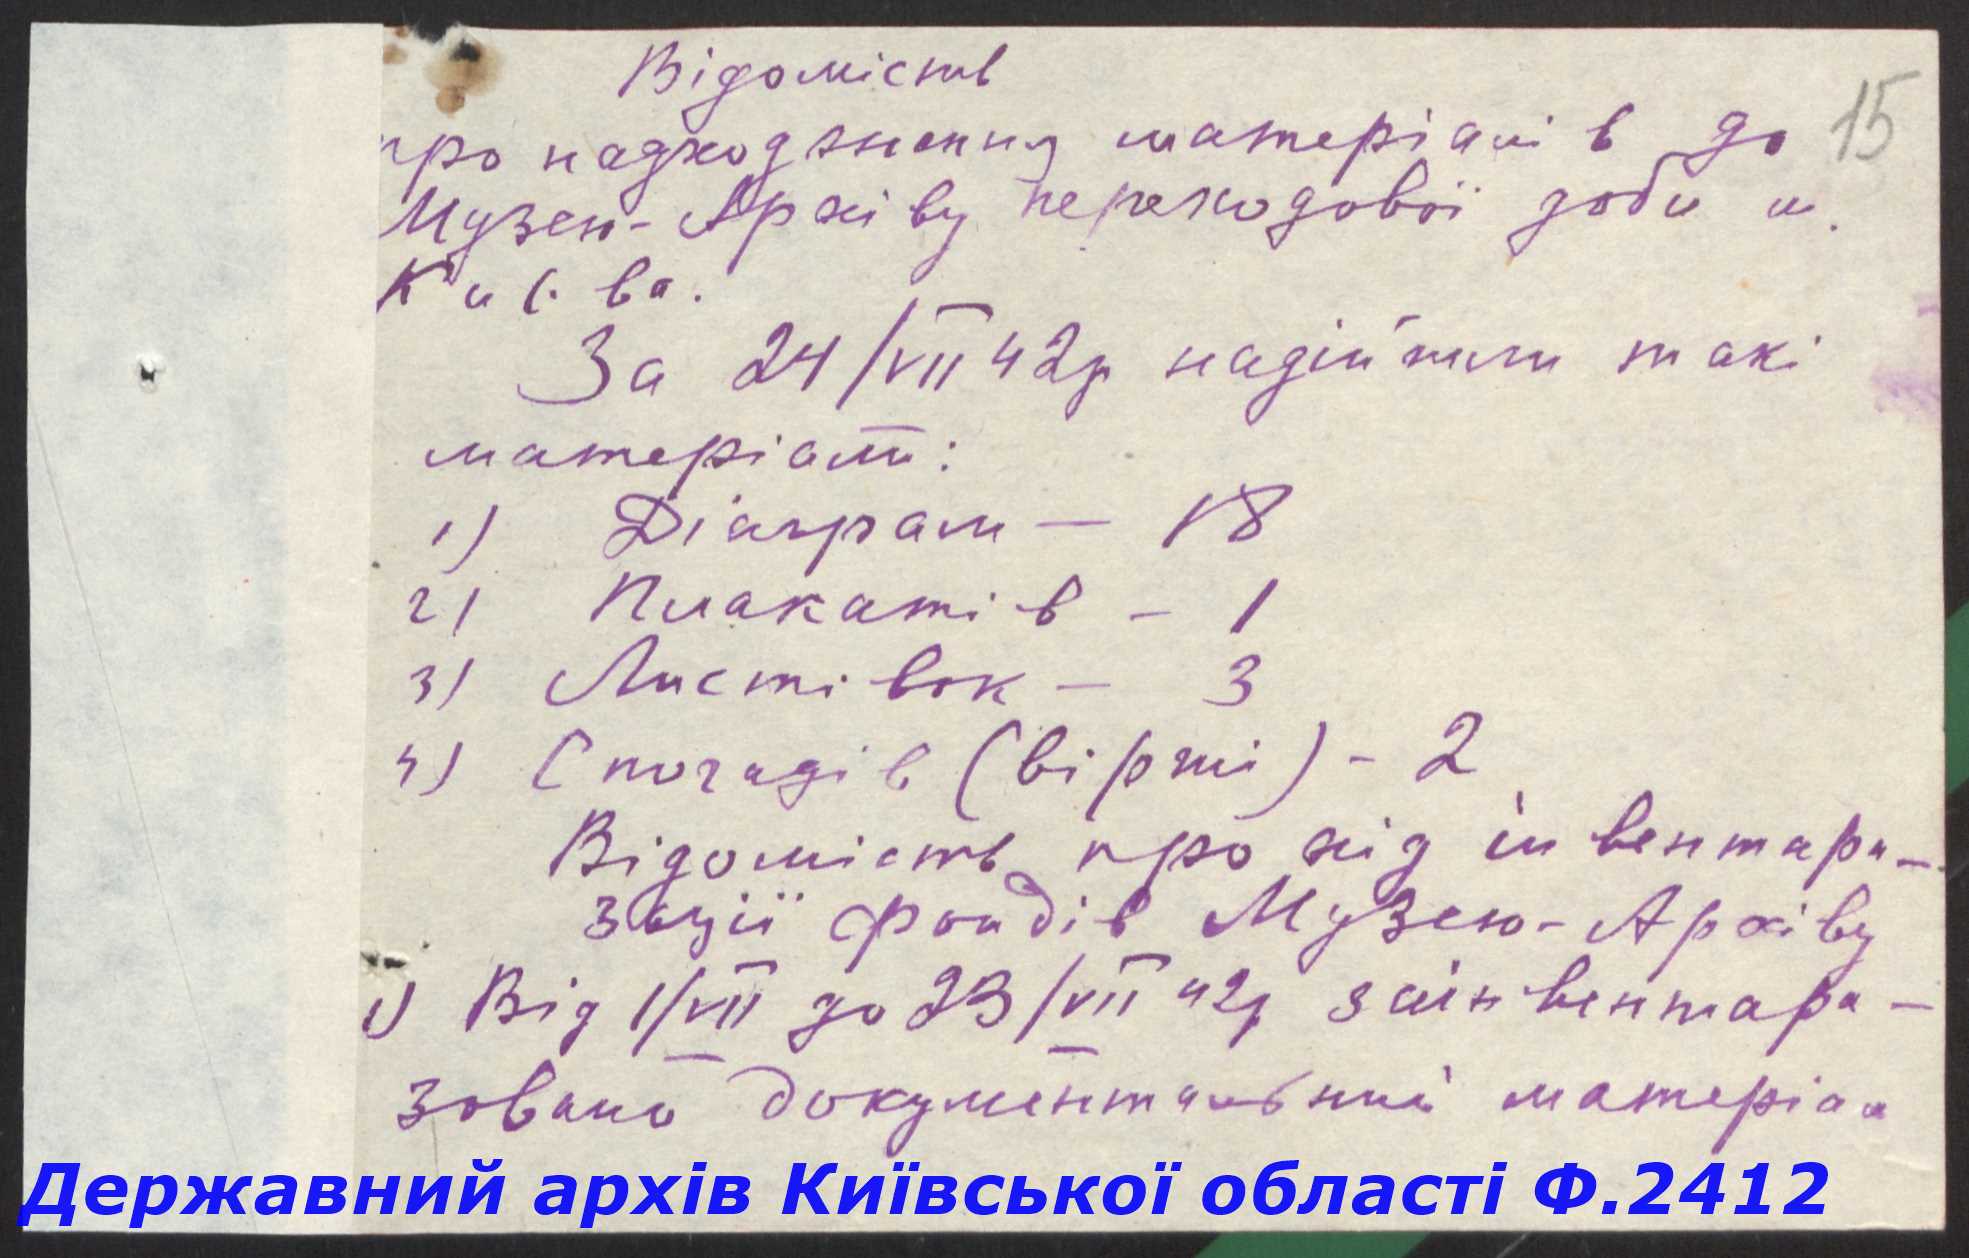 Відомість
про надходження матеріалів до 15
Музею-Архіву переходової доби м.
Києва.
За 24/VII 42р надійшли такі
матеріали:
1) Діаграм — 18
2) Плакатів - 1
3) Листівок - 3
4) Спогадів (вірші) - 2
Відомість про хід інвентари-
зації фондів Музею-Архіву
1) Від 1/VII до 23/VII 42р заінвентари-
зовано документальний матеріал
Державний архів Київської області Ф.2412